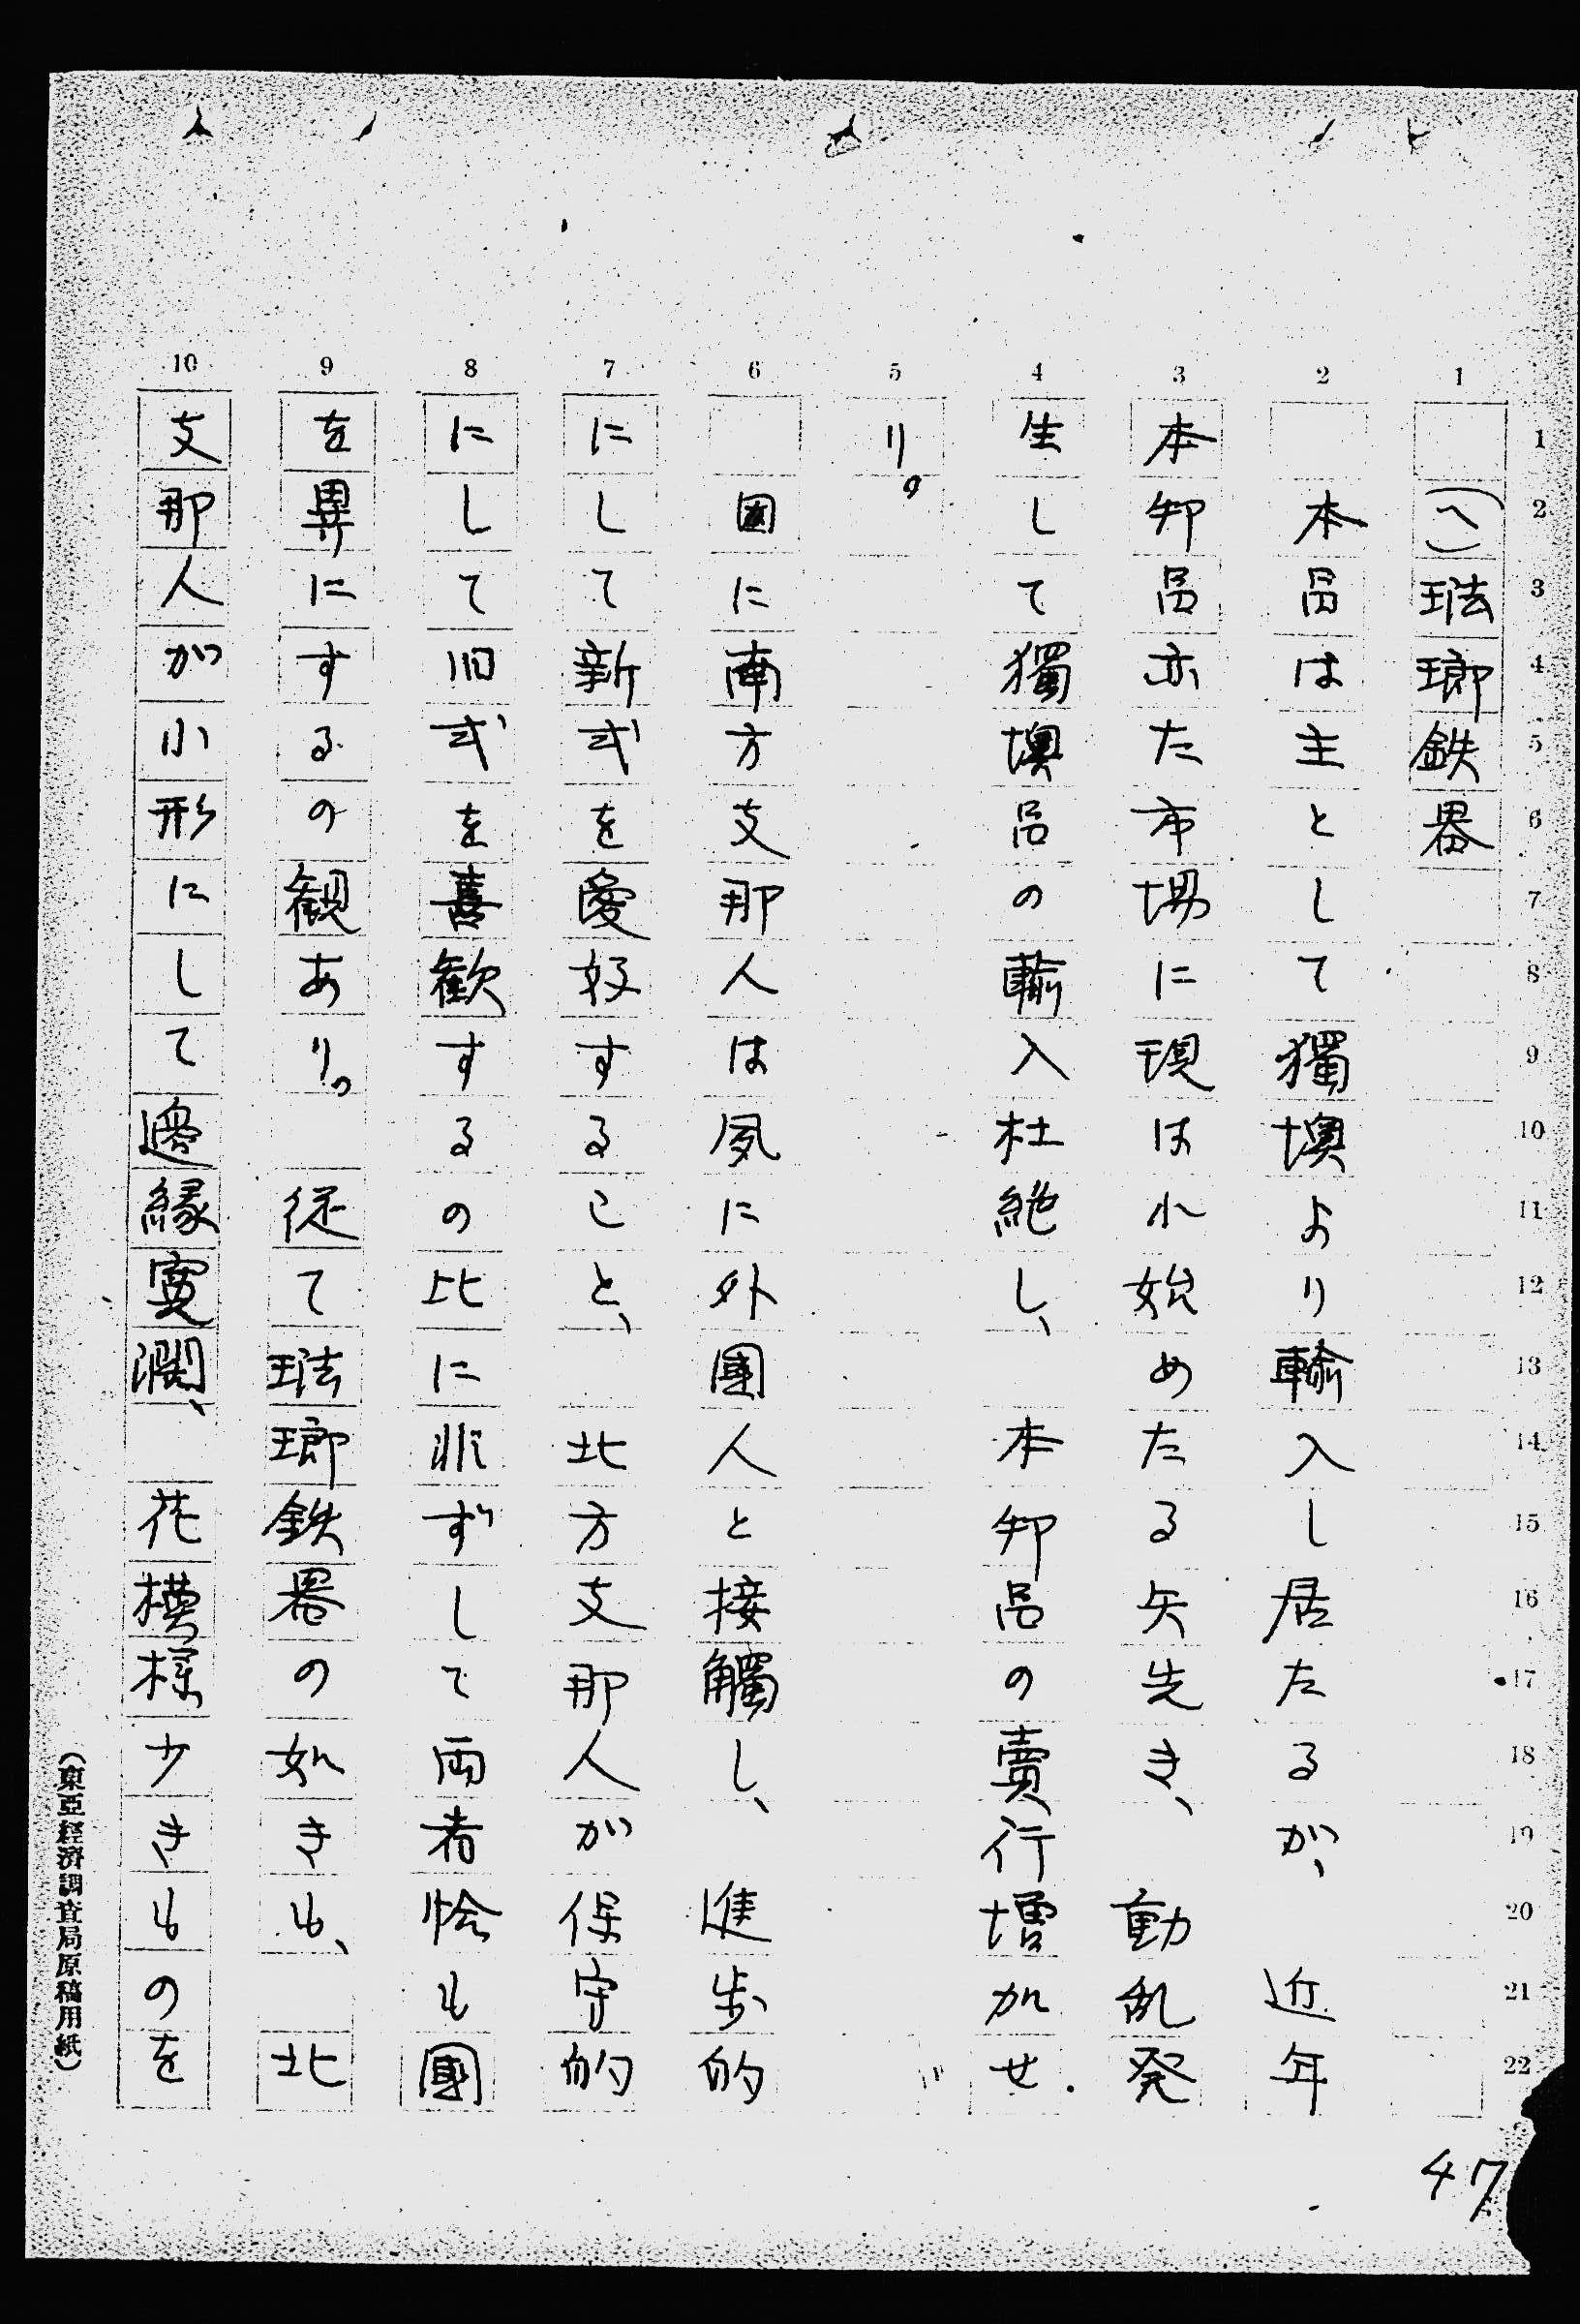 (ヘ)琺瑯鉄器
本品は主として獨墺より輸入し居たるが、近年
本邦品亦た市場に現はれ始めたる矢先き、動乱発
生して獨墺品の輸入杜絶し、本邦品の賣行増加せ
り。
因に南方支那人は夙に外國人と接觸し、進歩的
にして新式を愛好すること、北方支那人が保守的
にして旧式を喜歓するの比に非ずして両者恰も國
を異にするの観あり。従て琺瑯鉄器の如きも、北
支那人が小形にして邊縁寛濶、花模様少きものを
(東亞経済調査局原稿用紙)
47
1
2
3
4
5
6
7
8
9
10
1
2
3
4
5
6
7
8
9
10
11
12
13
14
15
16
17
18
19
20
21
22